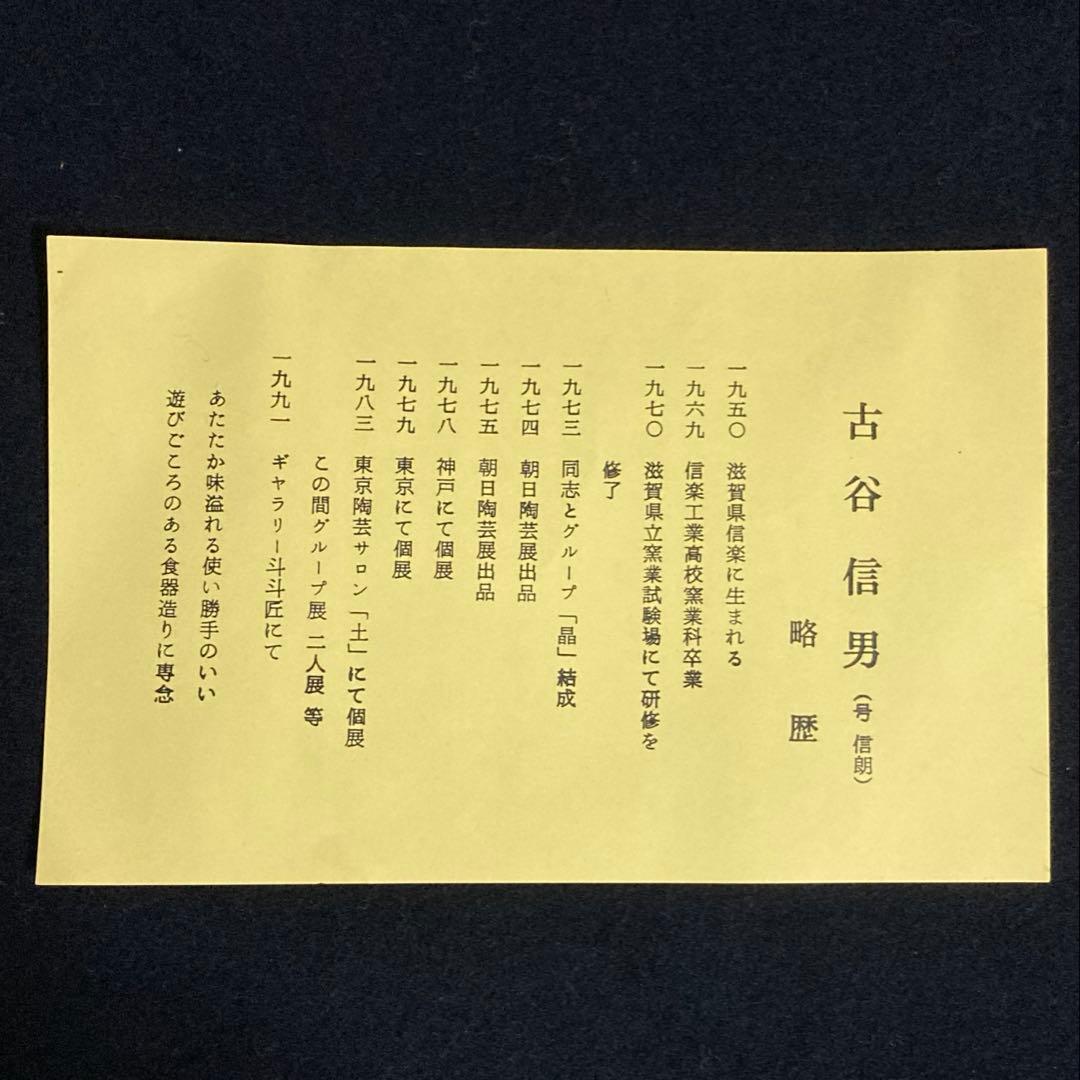 古谷信男（号 信朗）
略歴
一九五〇 滋賀県信楽に生まれる
一九六九 信楽工業高校窯業科卒業
一九七〇 滋賀県立窯業試験場にて研修を
修了
一九七三 同志とグループ「晶」結成
一九七四 朝日陶芸展出品
一九七五 朝日陶芸展出品
一九七八 神戸にて個展
一九七九 東京にて個展
一九八三 東京陶芸サロン「土」にて個展
この間グループ展 二人展 等
一九九一 ギャラリー斗斗匠にて
あたたか味溢れる使い勝手のいい
遊びごころのある食器造りに専念